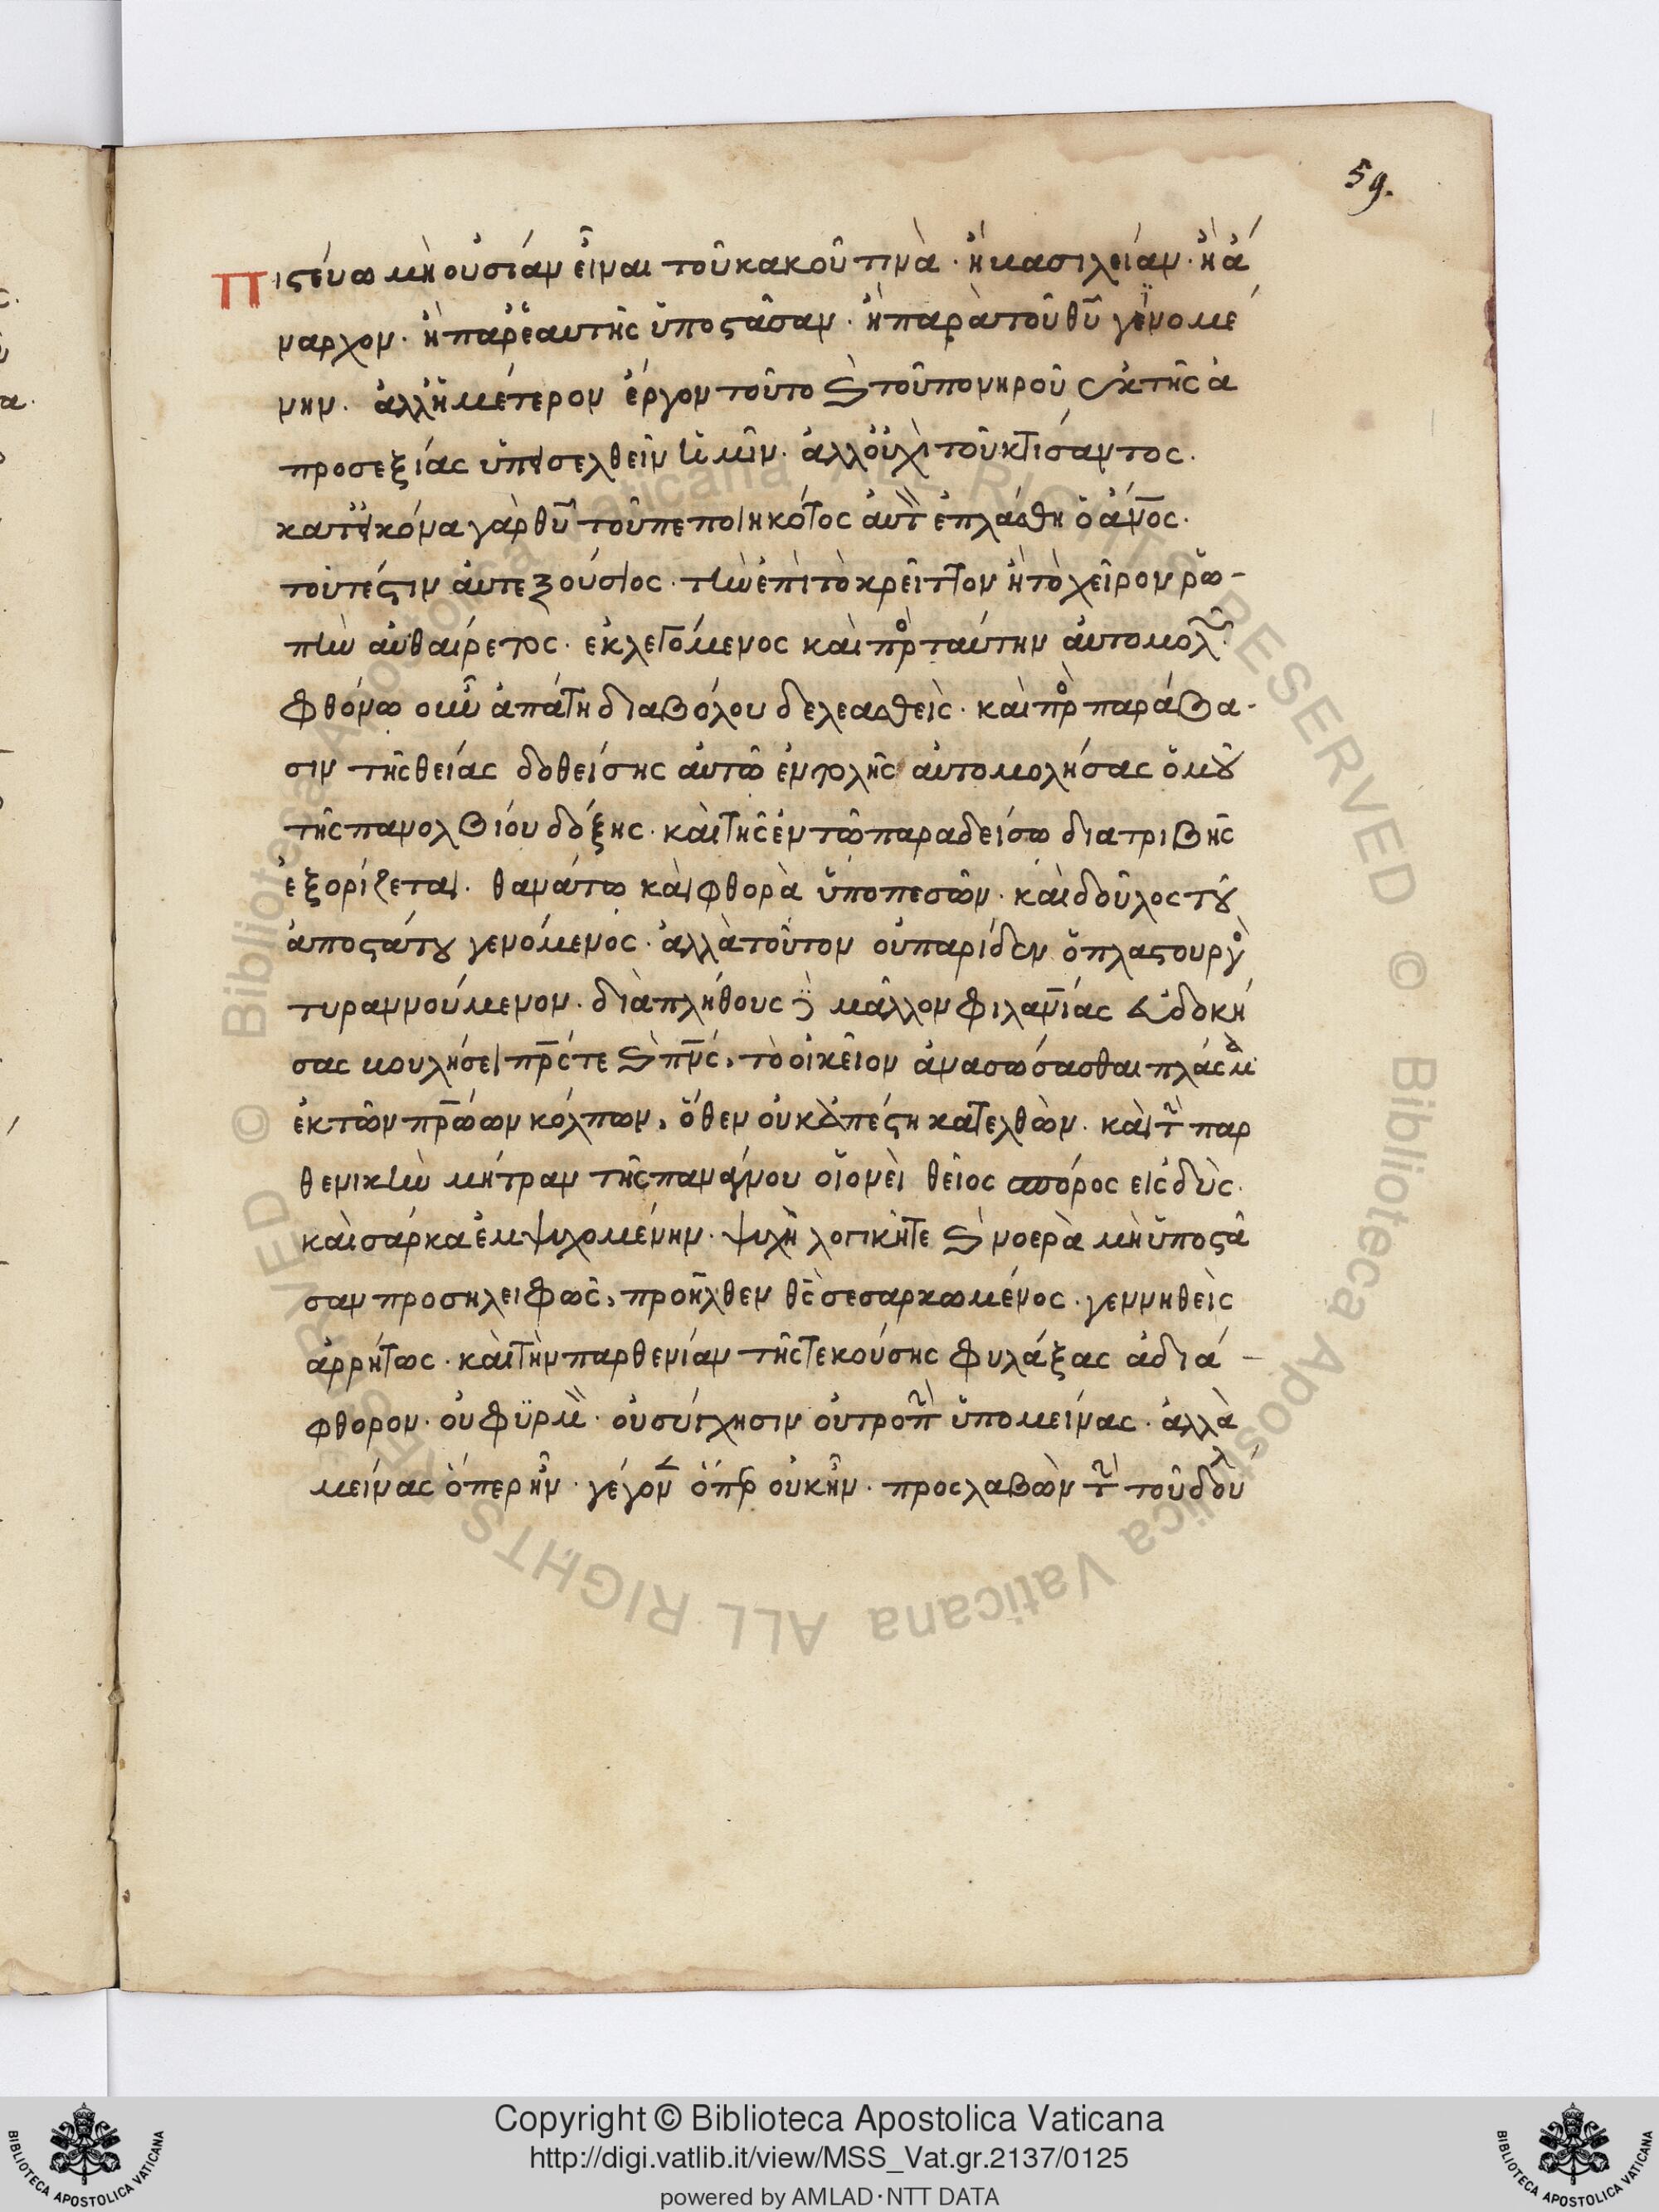 59.
Πιστεύω μὴ οὐσίαν εἶναι τοῦ κακοῦ τινὰ · ἢ βασιλείαν · ἢ ἄ
ναρχον · ἢ παρ' ἑαυτῆς ὑποστᾶσαν · ἢ παρὰ τοῦ θῦ γενομέ
νην · ἀλλ' ἡμέτερον ἔργον τοῦτο καὶ τοῦ πονηροῦ ἐκ τῆς ἀ
προσεξίας ὑπεισελθεῖν ἡμῖν · ἀλλ' οὐχὶ τοῦ κτίσαντος ·
κατ' εἰκόνα γὰρ θῦ τοῦ πεποιηκότος αὐτ ἐπλάσθη ὁ ἄνος ·
τουτέστιν αὐτεξούσιος · τὴν ἐπὶ τὸ κρεῖττον ἢ τὸ χεῖρον ῥο-
πὴν αὐθαίρετος · ἐκλεγόμενος καὶ πρὸ ταύτην αὐτομολ
φθόνω οὖν ἀπάτη διαβόλου δελεασθεὶς · καὶ πρὸ παράβα-
σιν τῆς θείας δοθείσης αὐτῶ ἐντολῆς αὐτομολήσας ὁμοῦ
τῆς πανολβίου δόξης · καὶ τῆς ἐν τῶ παραδείσω διατριβῆς
ἐξορίζεται · θανάτω καὶ φθορὰ ὑποπεσῶν · καὶ δοῦλος τοῦ
ἀποστάτου γενόμενος · ἀλλὰ τοῦτον οὐ παρίδεν ὁ πλαστουργὸ
τυραννούμενον · διὰ πλήθους δὲ μᾶλλον φιλανίας εὐδοκή
σας βουλήσει πρς τε καὶ πνς, τὸ οἰκεῖον ἀνασώσασθαι πλάσμα
ἐκ τῶν πρώων κόλπων, ὅθεν οὐκ ἀπέστη κατελθὼν · καὶ τὴν παρ
θενικὴν μήτραν τῆς παναγνου οἱονεὶ θεῖος σπόρος εἰσδὺς ·
καὶ σάρκα ἐμψυχομένην · ψυχῆ λογικῆ τε καὶ νοερὰ μὴ ὑποστᾶ
σαν προσηλειφως, προῆλθεν θς σεσαρκωμένος · γεννηθεὶς
ἀρρήτως · καὶ τὴν παρθενίαν τῆς τεκούσης φυλάξας ἀδιά-
φθορον · οὐ φυρμ · οὐ σύγχησιν οὐ τροπὴν ὑπομείνας · ἀλλὰ
μείνας ὅπερ ἦν · γέγονε ὅπερ οὐκ ἦν · προσλαβὼν τὴν τοῦ δού
Copyright © Biblioteca Apostolica Vaticana
http://digi.vatlib.it/view/MSS_Vat.gr.2137/0125
powered by AMLAD·NTT DATA
BIBLIOTECA APOSTOLICA VATICANA
BIBLIOTECA APOSTOLICA VATICANA
© Biblioteca Apostolica Vaticana ALL RIGHTS RESERVED
© Biblioteca Apostolica Vaticana ALL RIGHTS RESERVED